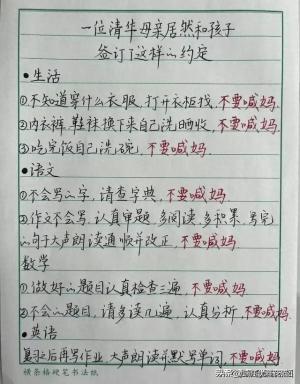 一位清华母亲居然和孩子
签订了这样的约定
●生活
①不知道穿什么衣服,打开衣柜找,不要喊妈
②内衣裤,鞋袜换下来自己洗晒收,不要喊妈.
③吃完饭自己洗碗,不要喊妈
●语文
①不会写的字,请查字典,不要喊妈
②作文不会写,认真审题,多阅读,多积累,写完
的句子大声朗读通顺并改正,不要喊妈
数学
①做好的题目认真检查三遍,不要喊妈
②不会的题目,请多读几遍,认真分析,不要喊妈
●英语
复习之后再写作业,大声朗读并默写单词,不要喊妈
横条格硬笔书法纸